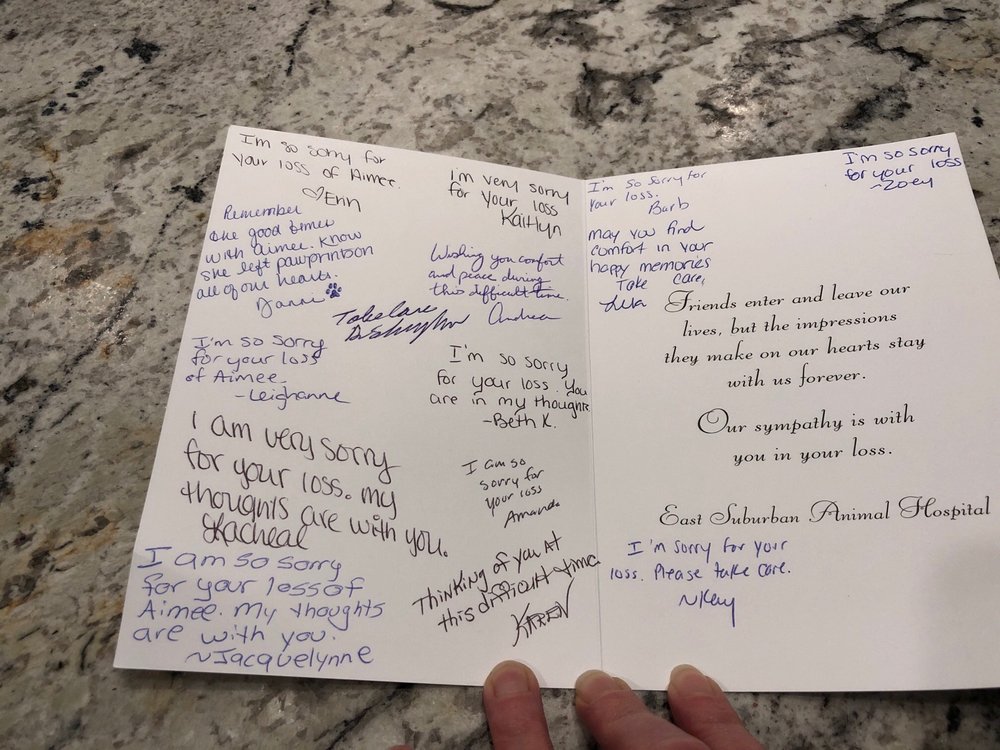 I'm so sorry for
your loss of Aimee.
♡Erin
Remember
the good times
with aimee. Know
she left pawprints on
all of our hearts.
I'm very sorry
for your loss
Kaitlyn
Wishing you comfort
and peace during
this difficult time.
Andrea
Take Care
I'm so sorry
for your loss
of Aimee.
-Leighanne
I'm so sorry
for your loss. You
are in my thoughts
-Beth K.
I am very sorry
for your loss. My
thoughts are with you.
I am so
sorry for
your loss
Amanda
I am so sorry
for your loss of
Aimee. My thoughts
are with you.
~Jacquelynne
Thinking of you At
this difficult time.
KAREN
I'm so sorry for
your loss.
Barb
I'm so sorry
for your loss
~Zoey
may you find
comfort in your
happy memories
Take Care,
Friends enter and leave our
lives, but the impressions
they make on our hearts stay
with us forever.
Our sympathy is with
you in your loss.
East Suburban Animal Hospital
I'm sorry for your
loss. Please take care.